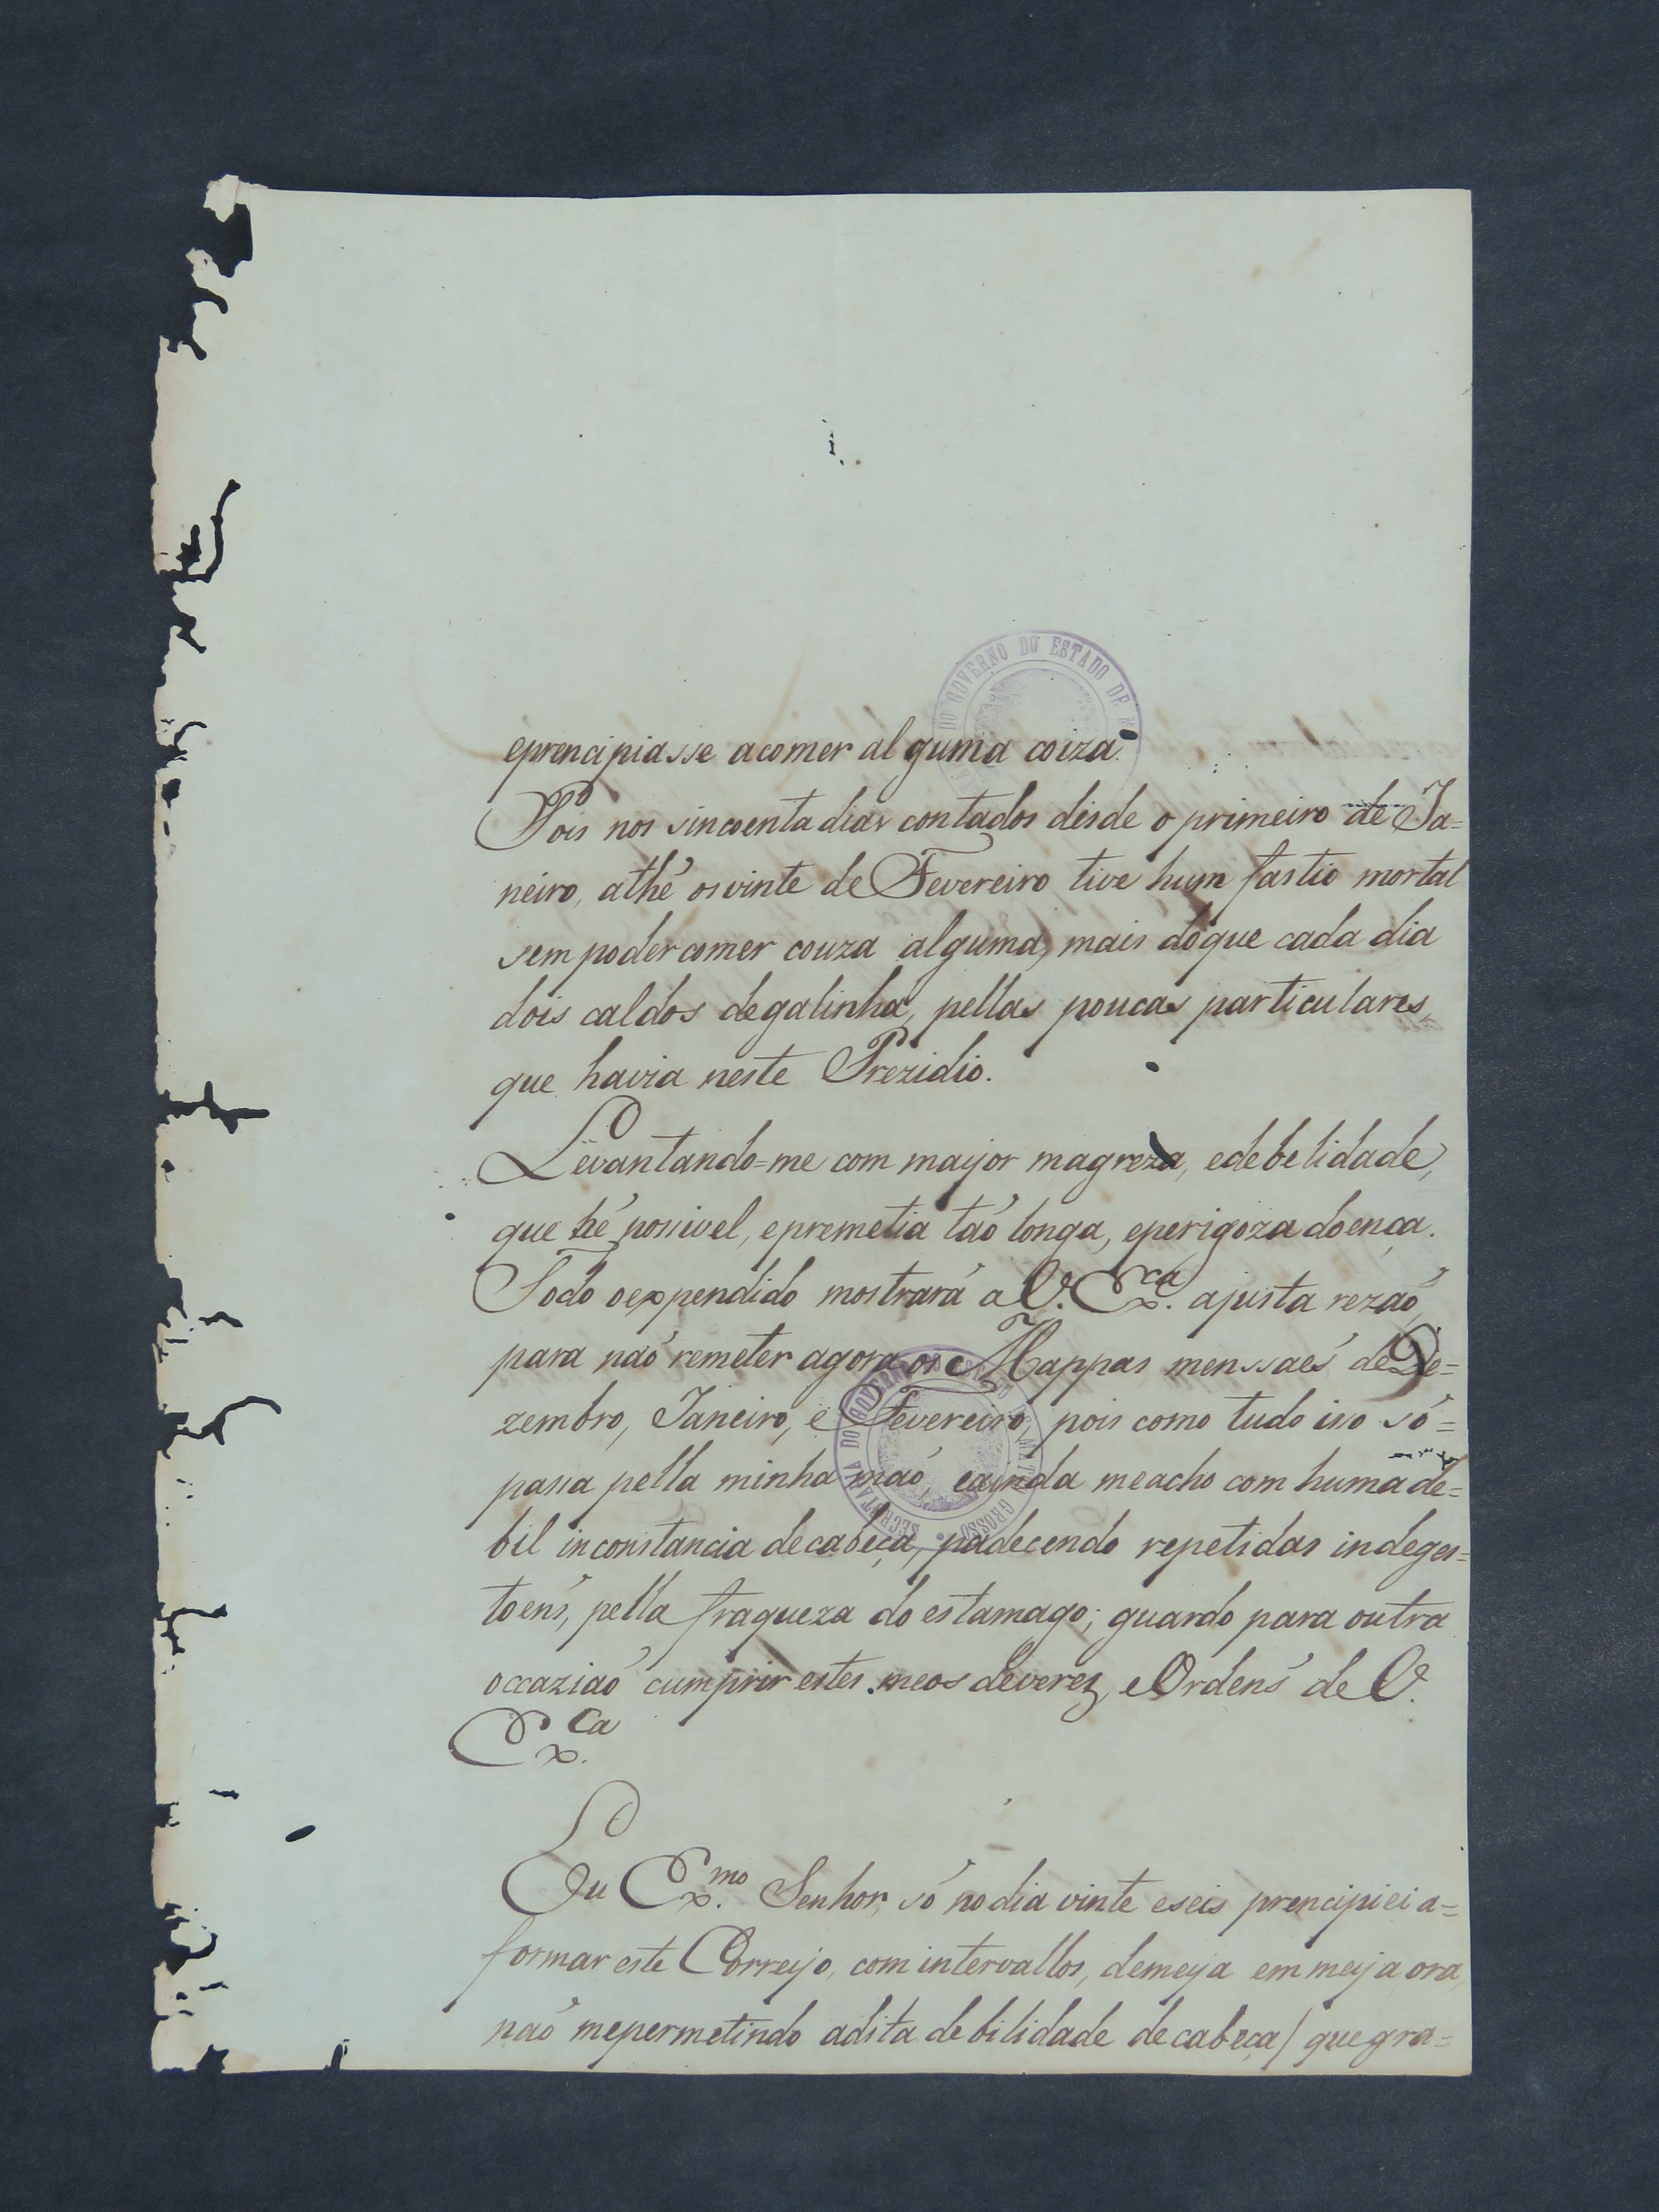 eprencipiasse acomer alguma coiza.
Pois nos sincoenta dias contados desde o primeiro de Ja=
neiro, athé os vinte de Fevereiro tive hum fastio mortal
sem poder comer couza alguma, mais doque cada dia
dois caldos degalinha, pellas poucas particulares,
que havia neste Prezidio.
Levantando=me com mayor magreza, edebelidade,
que hé possivel, epremetia taó longa, eperigoza doença.
Todo oexpendido mostrará a V. Ex.ca ajusta rezaó,
para naó remeter agora os Mappas menssaes de De=
zembro, Janeiro, e Fevereiro, pois como tudo isso só=
passa pella minha maó, eainda meacho com huma de=
bil inconstancia decabeça, padecendo repetidas indeges=
toens, pella fraqueza do estamago; guardo para outra
occaziaó cumprir estes meos deverez, eOrdens de V.
Ex.ca
Eu Ex.mo Senhor, só nodia vinte eseis prencipiei a=
formar este Correyo, com intervallos, demeya em meya ora,
naó mepermetindo adita debilidade decabeça / quegra=
GOVERNO DO ESTADO DE
SECRETARIA DO GOVERNO DO ESTADO DE MATTO GROSSO